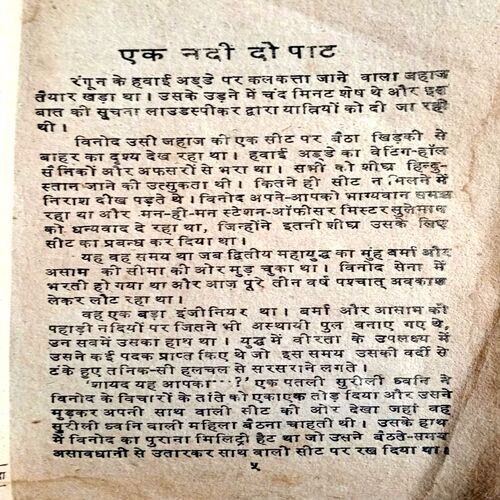 एक नदी दो पाट
रंगून के हवाई अड्डे पर कलकत्ता जाने वाला जहाज
तैयार खड़ा था। उसके उड़ने में चंद मिनट शेष थे और इस
बात की सूचना लाउडस्पीकर द्वारा यात्रियों को दी जा रही
थी।
विनोद उसी जहाज की एक सीट पर बैठा खिड़की से
बाहर का दृश्य देख रहा था। हवाई अड्डे का वेटिंग-हॉल
सैनिकों और अफसरों से भरा था। सभी को शीघ्र हिन्दु-
स्तान जाने की उत्सुकता थी। कितने ही सीट न मिलने में
निराश दीख पड़ते थे। विनोद अपने-आपको भाग्यवान समझ
रहा था और मन-ही-मन स्टेशन-ऑफीसर मिस्टर सुलेमान
को धन्यवाद दे रहा था, जिन्होंने इतनी शीघ्र उसके लिए
सीट का प्रबन्ध कर दिया था।
यह वह समय था जब द्वितीय महायुद्ध का मुंह बर्मा और
आसाम की सीमा की ओर मुड़ चुका था। विनोद सेना में
भरती हो गया था और आज पूरे तीन वर्ष पश्चात् अवकाश
लेकर लौट रहा था।
वह एक बड़ा इंजीनियर था। बर्मा और आसाम की
पहाड़ी नदियों पर जितने भी अस्थायी पुल बनाए गए थे,
उन सबमें उसका हाथ था। युद्ध में वीरता के उपलक्ष्य में
उसने कई पदक प्राप्त किए थे जो इस समय उसकी वर्दी से
टंके हुए तनिक-सी हलचल से सरसराने लगते।
'शायद यह आपका---?' एक पतली सुरीली ध्वनि ने
विनोद के विचारों के तांते को एकाएक तोड़ दिया और उसने
मुड़कर अपनी साथ वाली सीट की ओर देखा जहां वह
सुरीली ध्वनि वाली महिला बैठना चाहती थी। उसके हाथ
में विनोद का पुराना मिलिट्री हैट था जो उसने बैठते-समय
असावधानी से उतारकर साथ वाली सीट पर रख दिया था।
५